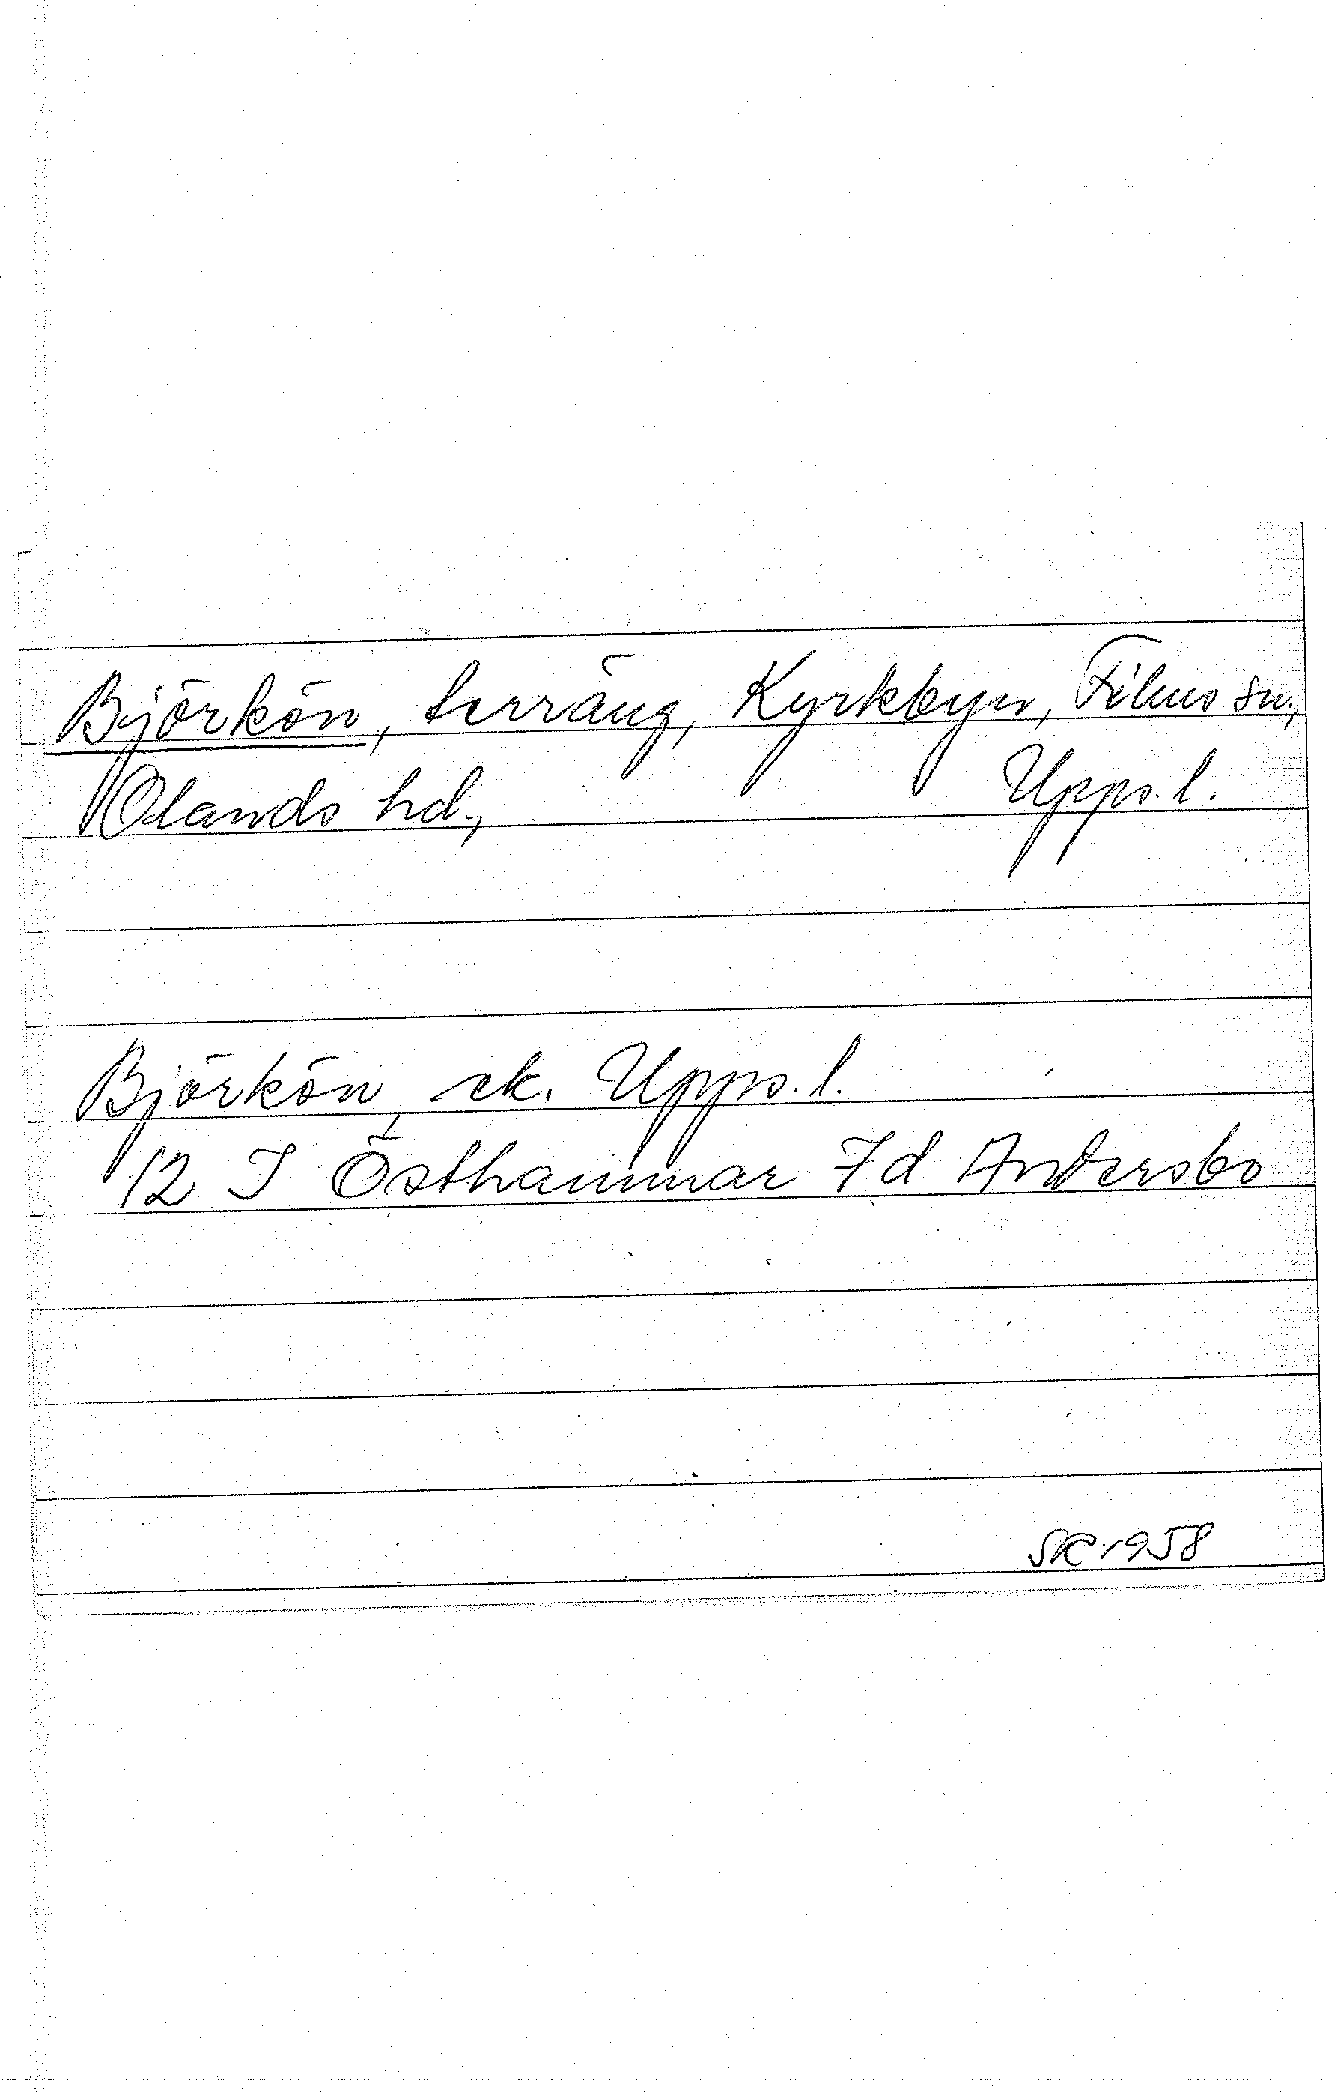 Björkön, terräng, Kyrkbyn, Films sn,
Olands hd., Upps. l.
Björkön, ek. Upps. l.
12 I Östhammar 7d Andersbo
SK 1958